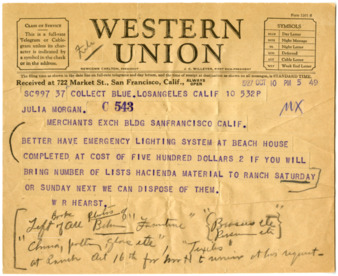 Form 1201 S
CLASS OF SERVICE
This is a full-rate
Telegram or Cable-
gram unless its char-
acter is indicated by
a symbol in the check
or in the address.
WESTERN
UNION
SYMBOLS
Day Letter
Night Message
Night Letter
Cable Letter
Week End Letter
NEWCOMB CARLTON, PRESIDENT
J. C. WILLEVER, FIRST VICE-PRESIDENT
The filing time as shown in the date line on full-rate telegrams and day letters, and the time of receipt at destination as shown on all messages, is STANDARD TIME.
Received at 722 Market St., San Francisco, Calif. ALWAYS OPEN
OCT 10 PM 5 49
SC997 37 COLLECT BLUE. LOSANGELES CALIF 10 532P
JULIA MORGAN. C 543
MX
MERCHANTS EXCH BLDG SANFRANCISCO CALIF.
BETTER HAVE EMERGENCY LIGHTING SYSTEM AT BEACH HOUSE
COMPLETED AT COST OF FIVE HUNDRED DOLLARS 2 IF YOU WILL
BRING NUMBER OF LISTS HACIENDA MATERIAL TO RANCH SATURDAY
OR SUNDAY NEXT WE CAN DISPOSE OF THEM.
W R HEARST.
Left of all
Furniture
China, pottery, glass etc
Textiles
at Ranch Oct 16th for Mr H